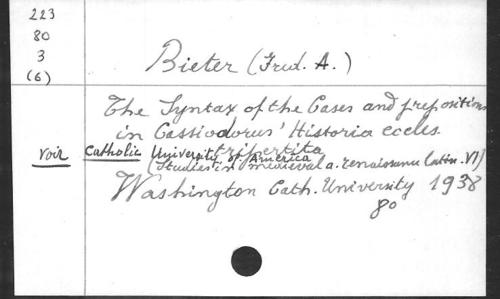 223
80
3
(6)
Bieter (Fred. A.)
The Syntax of the Cases and prepositions
in Cassiodorus' Historia eccles.
tripertita
voir Catholic University of America
(Studies in medieval a. renaissance latin. VI)
Washington Cath. University 1938
8o